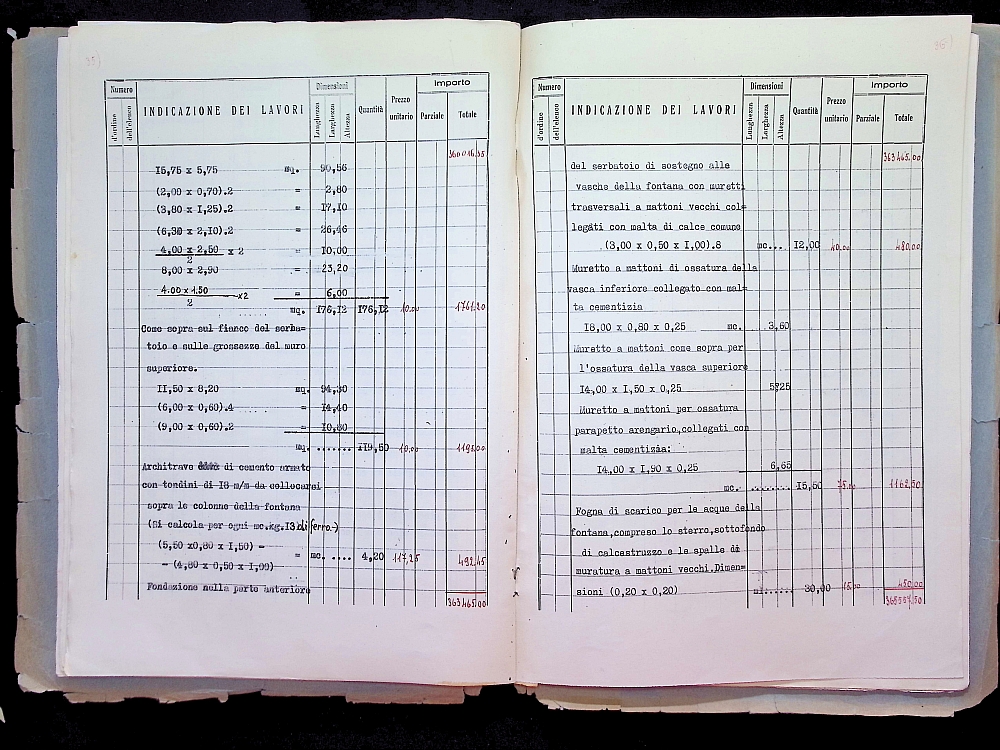 35)
Numero
d'ordine
dell'elenco
INDICAZIONE DEI LAVORI
Dimensioni
Lunghezza
Larghezza
Altezza
Quantità
Prezzo
unitario
Importo
Parziale
Totale
360016,35
15,75 x 5,75 mq. 90,56
(2,00 x 0,70).2 = 2,80
(3,80 x I,25).2 = I7,I0
(6,30 x 2,I0).2 = 26,46
4,00 x 2,50 x 2 = I0,00
2
8,00 x 2,90 = 23,20
4.00 x 1.50 x2 = 6,00
2
mq. I76,I2 I76,I2 10.00 1761.20
Come sopra sul fianco del serba=
toio e sulle grossezze del muro
superiore.
II,50 x 8,20 mq. 94,30
(6,00 x 0,60).4 = I4,40
(9,00 x 0,60).2 = I0,80
mq. ....... II9,50 10,00 1195.00
Architrave di cemento armato
con tondini di I8 m/m da collocarsi
sopra le colonne della fontana
(Si calcola per ogni mc.kg.I3 di ferro.-)
(5,50 x0,80 x I,50) -
- (4,80 x 0,50 x I,00) = mc. .... 4,20 117,25 492,45
Fondazione nella parte anteriore
363465,00
36)
Numero
d'ordine
dell'elenco
INDICAZIONE DEI LAVORI
Dimensioni
Lunghezza
Larghezza
Altezza
Quantità
Prezzo
unitario
Importo
Parziale
Totale
363465,00
del serbatoio di sostegno alle
vasche della fontana con muretti
trasversali a mattoni vecchi col=
legati con malta di calce comune
(3,00 x 0,50 x I,00).8 mc... I2,00 40,00 480,00
Muretto a mattoni di ossatura della
vasca inferiore collegato con mal=
ta cementizia
I8,00 x 0,80 x 0,25 mc. 3,60
Muretto a mattoni come sopra per
l'ossatura della vasca superiore
I4,00 x I,50 x 0,25 5,25
Muretto a mattoni per ossatura
parapetto arengario,collegati con
malta cementizia:
I4,00 x I,90 x 0,25 6,65
mc. ........ I5,50 75.00 1162,50
Fogna di scarico per le acque della
fontana,compreso lo sterro,sottofondo
di calcestruzzo e la spalle di
muratura a mattoni vecchi.Dimen=
sioni (0,20 x 0,20) ml...... 30,00 15.00 450,00
365557,50